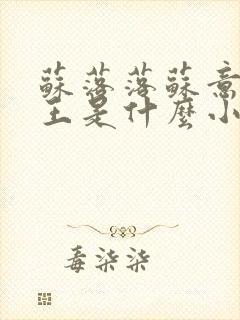 蘇落落蘇意
主是什麼小
毒柒柒